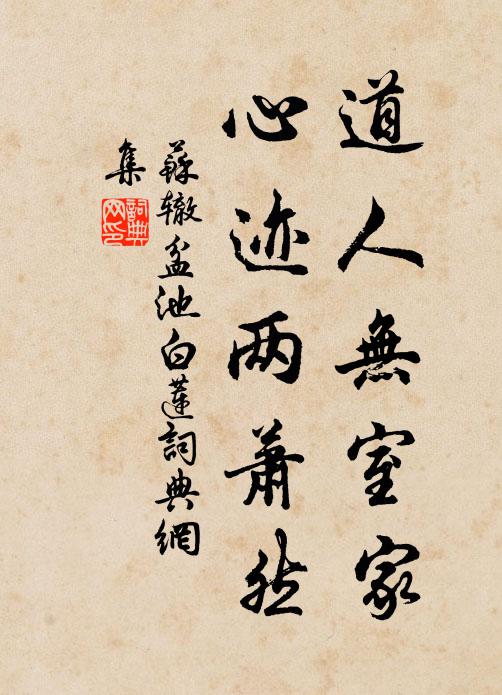 道人無室家
心迹两蕭然
蘇辙盆池白蓮詞典網
集
詞典网印